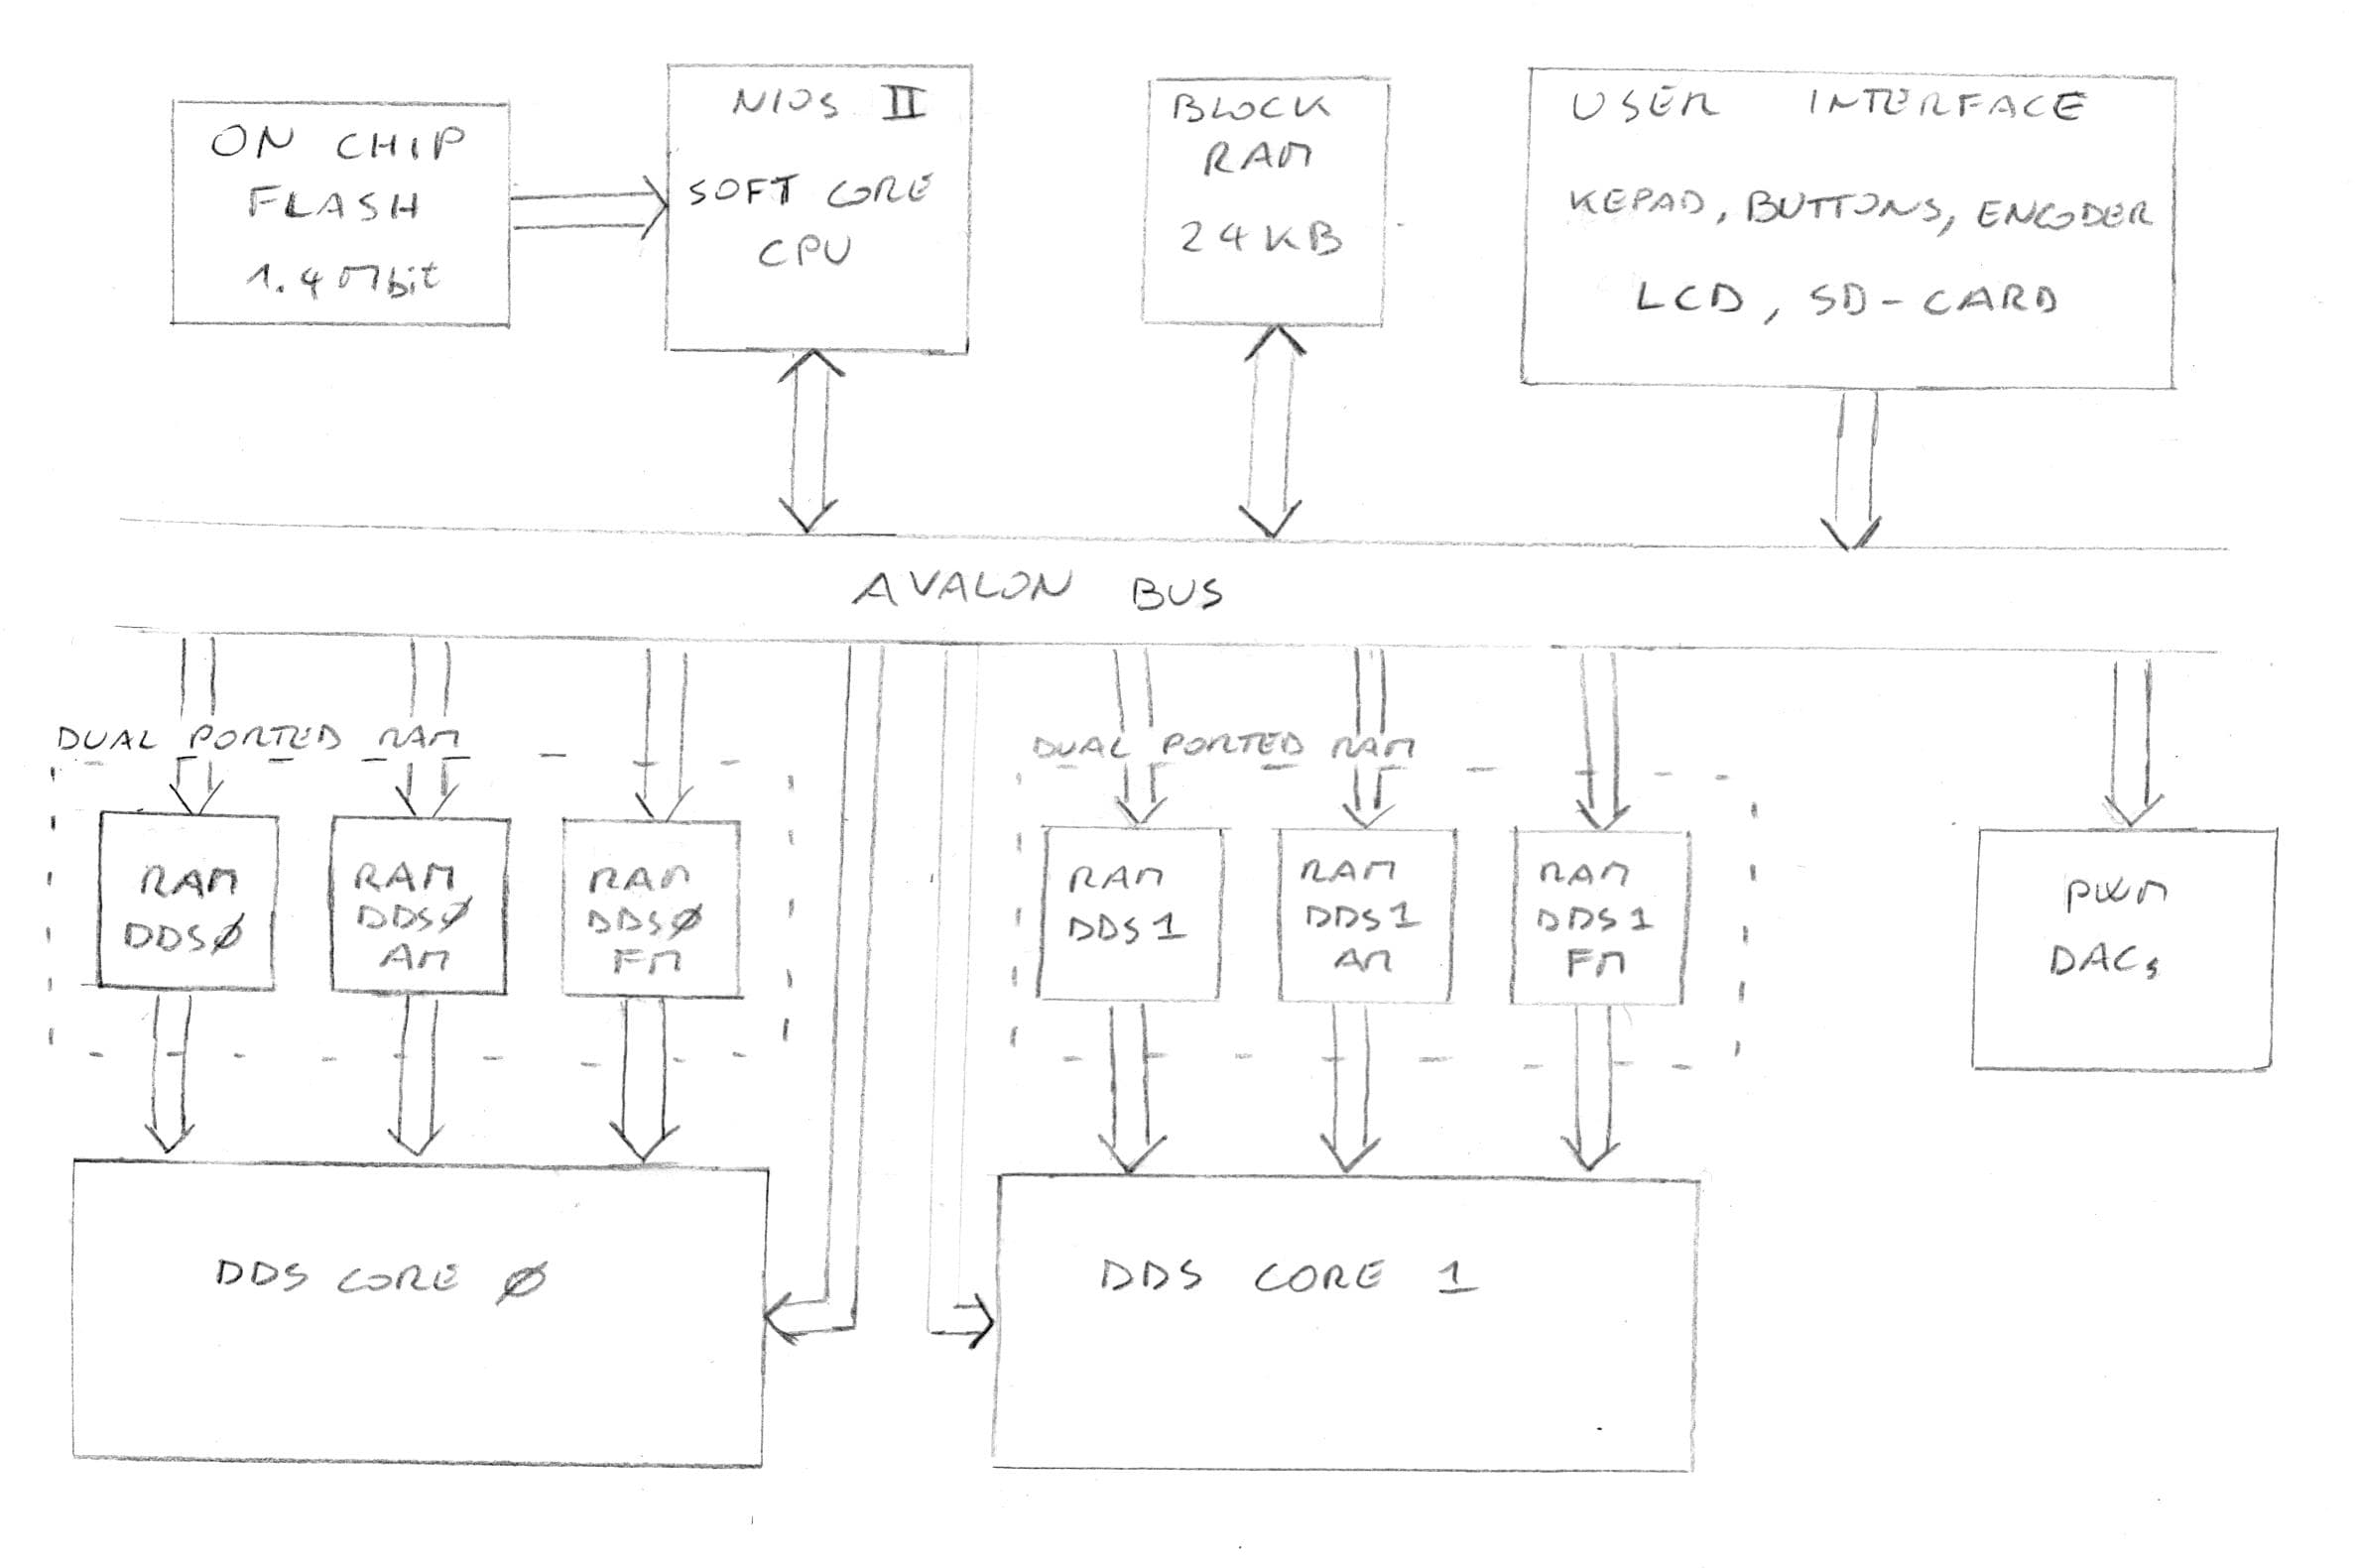 ON CHIP
FLASH
1.4 Mbit
NIOS II
SOFT CORE
CPU
BLOCK
RAM
24KB
USER INTERFACE
KEPAD, BUTTONS, ENCODER
LCD, SD-CARD
AVALON BUS
DUAL PORTED RAM
RAM
DDSØ
RAM
DDSØ
AM
RAM
DDSØ
FM
DUAL PORTED RAM
RAM
DDS1
RAM
DDS1
AM
RAM
DDS1
FM
PWM
DACs
DDS CORE Ø
DDS CORE 1